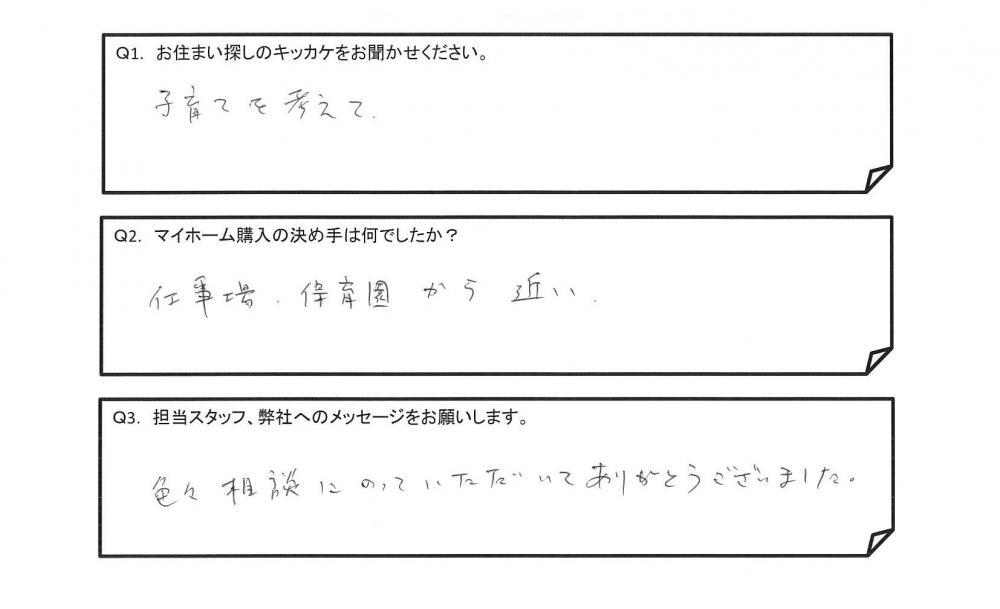 Q1. お住まい探しのキッカケをお聞かせください。
子育てを考えて.
Q2. マイホーム購入の決め手は何でしたか？
仕事場、保育園から近い.
Q3. 担当スタッフ、弊社へのメッセージをお願いします。
色々相談にのっていただいてありがとうございました。